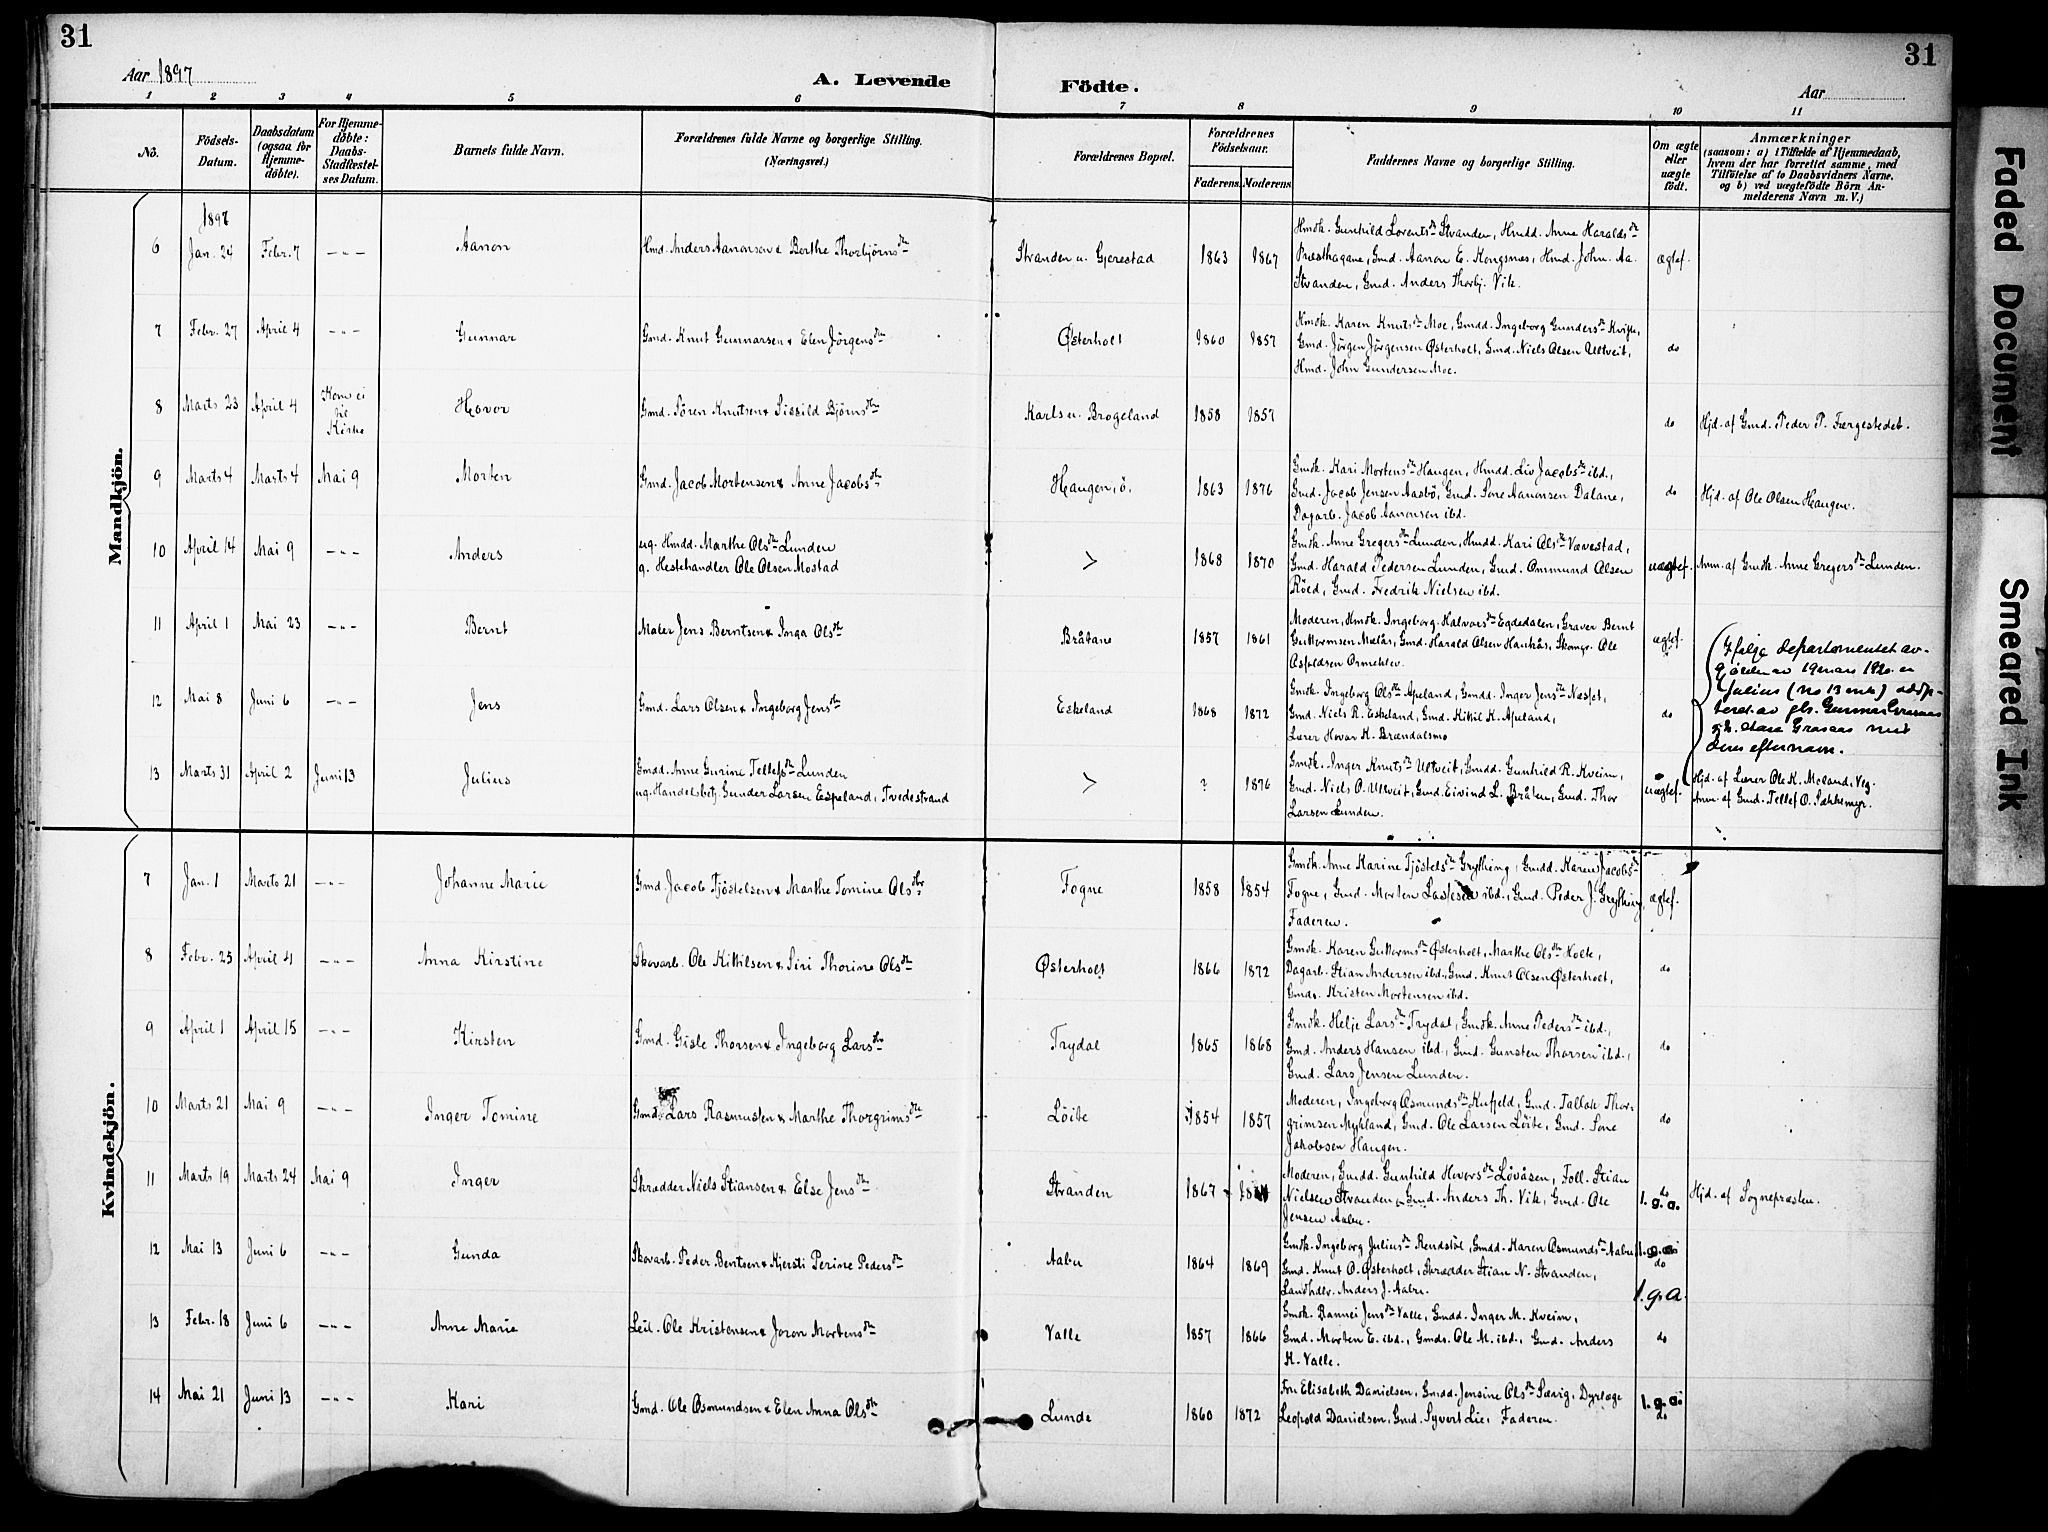 31
31
Aar 1897
A. Levende Födte.
Aar
1 2 3 4 5 6 7 8 9 10 11
Nō.
Födsels-Datum.
Daabsdatum (ogsaa for Hjemme-døbte).
For Hjemme-døbte: Daabs-Stadfæstel-ses Datum.
Barnets fulde Navn.
Forældrenes fulde Navne og borgerlige Stilling. (Næringsvei.)
Forældrenes Bopæl.
Forældrenes Födselsaar.
Faderens. Moderens.
Faddernes Navne og borgerlige Stilling.
Om ægte eller uægte födt.
Anmærkninger
(saasom: a) i Tilfælde af Hjemmedaab, hvem der har forrettet samme, med Tilföielse af to Daabsvidners Navne, og b) ved uægtefödte Börn An-melderens Navn m. V.)
Mandkjön.
1897
6 Jan. 24 Febr. 7 -"- Aanon Hmd. Anders Aanonsen & Berthe Thorbjørnsdtr Stranden u. Gjerestad 1863 1867 Hmdk. Gunhild Lorentsdtr Stranden, Hmdd. Anne Haraldsdtr
Præsthagane, Gmd. Aanon E. Kongsnæs, Hmd. John. Aa.
Stranden, Gmd. Anders Thorbj. Vik. ægtef.
7 Febr. 27 April 4 -"- Gunnar Gmd. Knut Gunnarsen & Elen Jörgensdtr Østerholt 1860 1857 Hmdk. Karen Knutsdtr Moe, Gmdd. Ingeborg Gundersdtr
Gmd. Jörgen Jörgensen Østerholt, Gmd. Niels Olsen Ulltveit,
Hmd. John Gundersen Moe. do
8 Marts 23 April 4 Kom ei til Kirke Hovor Gmd. Søren Knutsen & Sissild Bjørnsdtr Karls u. Brogeland 1858 1857 do Hjd. af Gmd. Peder P. Færgestedet.
9 Marts 4 Marts 4 Mai 9 Morten Gmd. Jacob Mortensen & Anne Jacobsdtr Haugen, ö. 1863 1876 Gmdk. Kari Mortensdtr Haugen, Hmdd. Liv Jacobsdtr ibd.,
Gmd. Jacob Jensen Aasbö, Gmd. Sone Aanonsen Dalane,
Dagarb. Jacob Aanonsen ibd. do Hjd. af Ole Olsen Haugen.
10 April 14 Mai 9 -"- Anders ug. Hmdd. Marthe Olsdtr Lunden
g. Hestehandler Ole Olsen Mostad 1868 1870 Gmdk. Anne Gregersdtr Lunden, Hmdd. Kari Olsdtr Vævestad,
Gmd. Harald Pedersen Lunden, Gmd. Ommund Olsen
Röed, Gmd. Fredrik Nielsen ibd. uægtef. Anm. af Gmdk. Anne Gregersdtr Lunden.
11 April 1 Mai 23 -"- Bernt Maler Jens Berntsen & Inga Olsdtr Bråtane 1857 1861 Moderen, Hmdk. Ingeborg Halvorsdtr Egdedalen, Graver Bernt
Guttormsen Melås, Gmd. Harald Olsen Haukås, Skomgr. Ole
Osfoldsen Ormeklev. ægtef.
12 Mai 8 Juni 6 -"- Jens Gmd. Lars Olsen & Ingeborg Jensdtr Eskeland 1868 1872 Gmdk. Ingeborg Olsdtr Apeland, Gmdd. Inger Jensdtr Næset,
Gmd. Niels R. Eskeland, Gmd. Kittil K. Apeland,
Lærer Hovar K. Brændalsmo do
Ifølge departementet av-
gjørelse av 19 mars 1920 er
Julius (no 13 ) adop-
teret av gb. Gunnar Grasaas
og h. Grasaas med
deres efternavn.
13 Marts 31 April 2 Juni 13 Julius Gmdd. Anne Gurine Tellefsdtr Lunden
ug. Handelsbetj. Gunder Larsen Espeland, Tvedestrand ? 1876 Gmdk. Inger Knutsdtr Ulltveit, Gmdd. Gunhild R. Kveim,
Gmd. Niels O. Ulltveit, Gmd. Eivind L. Bråten, Gmd. Thor
Larsen Lunden. uægtef. Hjd. af Lærer Ole K. Moland, Veg.
Anm. af Gmd. Tellef O. Sækkemyr.
Kvindekjön.
7 Jan. 1 Marts 21 -"- Johanne Marie Gmd. Jacob Tjöstelsen & Marthe Tomine Olsdtr Fogne 1858 1854 Gmdk. Anne Karine Tjöstelsdtr Grytting, Gmdd. Karen Jacobsdtr
Fogne, Gmd. Morten Lastesen ibd., Gmd. Peder J. Grytting,
Faderen. ægtef.
8 Febr. 25 April 4 -"- Anna Kirstine Skovarb. Ole Kittilsen & Siri Thorine Olsdtr Østerholt 1866 1872 Gmdk. Karen Guttormsdtr Østerholt, Marthe Olsdtr Holte,
Dagarb. Stian Andersen ibd., Gmd. Knut Olsen Østerholt,
Gmds. Kristen Mortensen ibd. do
9 April 1 April 15 -"- Kirsten Gmd. Gisle Thorsen & Ingeborg Larsdtr Trydal 1865 1868 Gmdk. Helje Larsdtr Trydal, Gmdk. Anne Pedersdtr ibd.,
Gmd. Anders Hansen ibd., Gmd. Gunsten Thorsen ibd.,
Gmd. Lars Jensen Lunden. do
10 Marts 21 Mai 9 -"- Inger Tomine Gmd. Lars Rasmussen & Marthe Thorgrimsdtr Löite 1854 1857 Moderen, Ingeborg Osmundsdtr Kufjeld, Gmd. Tallak Thor-
grimsen Mykland, Gmd. Ole Larsen Löite, Gmd. Sone
Jakobsen Haugen. do
11 Marts 19 Marts 24 Mai 9 Inger Skrædder Niels Stiansen & Else Jensdtr Stranden 1867 Moderen, Gmdd. Gunhild Hovorsdtr Lövåsen, Foll. Stian
Nielsen Stranden, Gmd. Anders Th. Vik, Gmd. Ole
Jensen Aabu. do 1. g. a. Hjd. af Sognepræsten.
12 Mai 13 Juni 6 -"- Gunda Skovarb. Peder Bentsen & Kjersti Perine Pedersdtr Aabu 1864 1869 Gmdk. Ingeborg Juliusdtr Rendstöl, Gmdd. Karen Osmundsdtr Aabu
Gmd. Knut O. Østerholt, Skrædder Stian N. Stranden,
Landhdlr. Anders J. Aabu. 1. g. a. do
1. g. a.
13 Febr. 18 Juni 6 -"- Anne Marie Leil. Ole Kristensen & Joron Mortensdtr Valle 1857 1866 Gmdk. Rannei Jensdtr Valle, Gmdd. Inger M. Kveim,
Gmd. Morten E. ibd., Gmds. Ole M. ibd., Gmd. Anders
K. Valle. do
14 Mai 21 Juni 13 -"- Kari Gmd. Ole Osmundsen & Elen Anna Olsdtr Lunde 1860 1872 Fru Elisabeth Danielsen, Gmdd. Jensine Olsdtr Sævig, Dyrlæge
Leopold Danielsen, Gmd. Syvert Lie, Faderen. 1. g. a. do
Faded Document
Smeared Ink